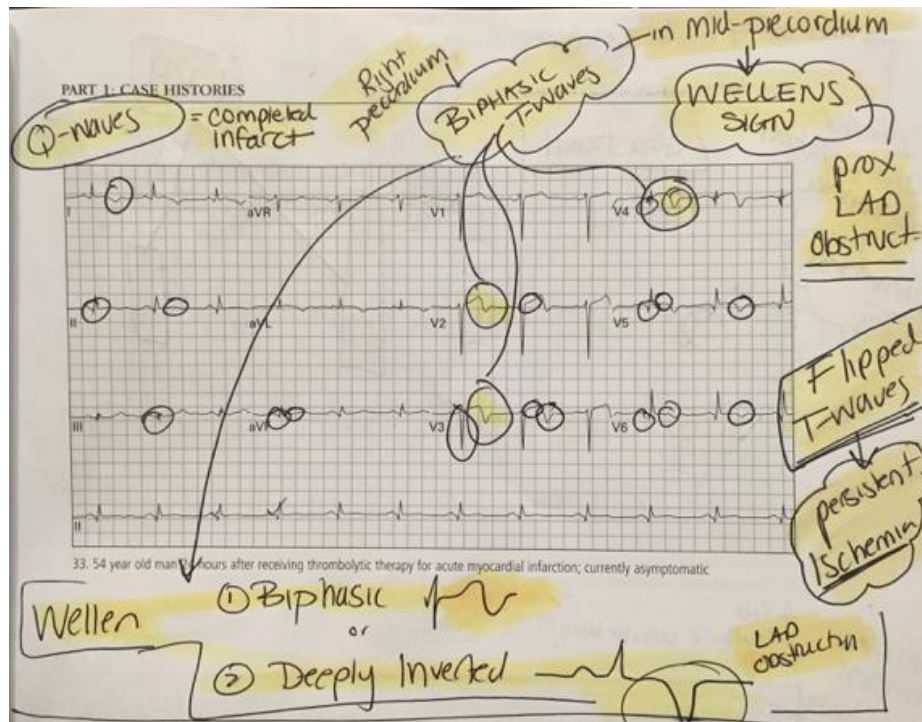 in mid-precordium
PART 1: CASE HISTORIES
Right
precordium
BIPHASIC
T-Waves
WELLENS
SIGN
Q-waves
= completed
infarct
prox
LAD
obstruct
I
aVR
V1
V4
II
aVL
V2
V5
III
aVF
V3
V6
II
Flipped
T-waves
persistent
Ischemia
33. 54 year old man 24 hours after receiving thrombolytic therapy for acute myocardial infarction; currently asymptomatic
Wellen
① Biphasic
or
② Deeply Inverted
LAD
obstruction